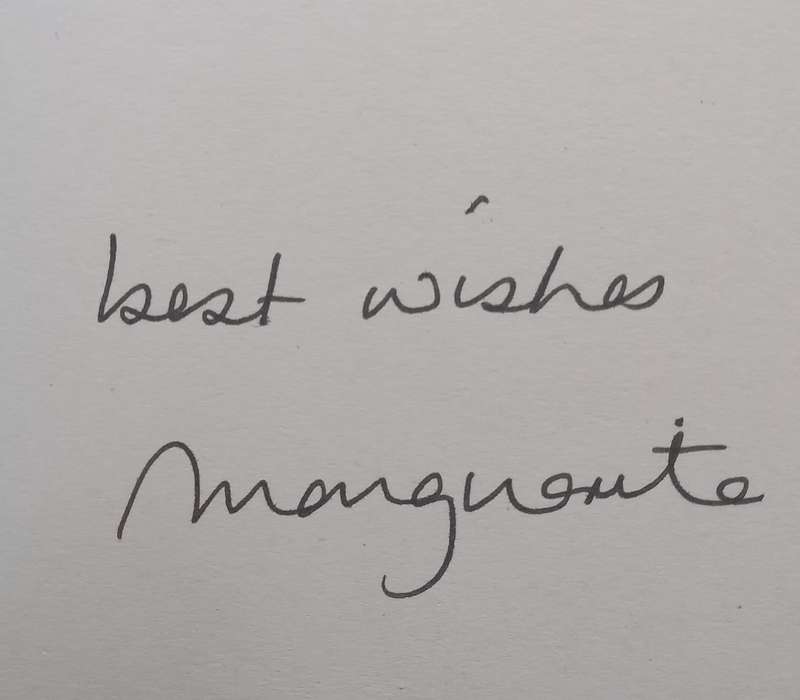 best wishes
Marguerite